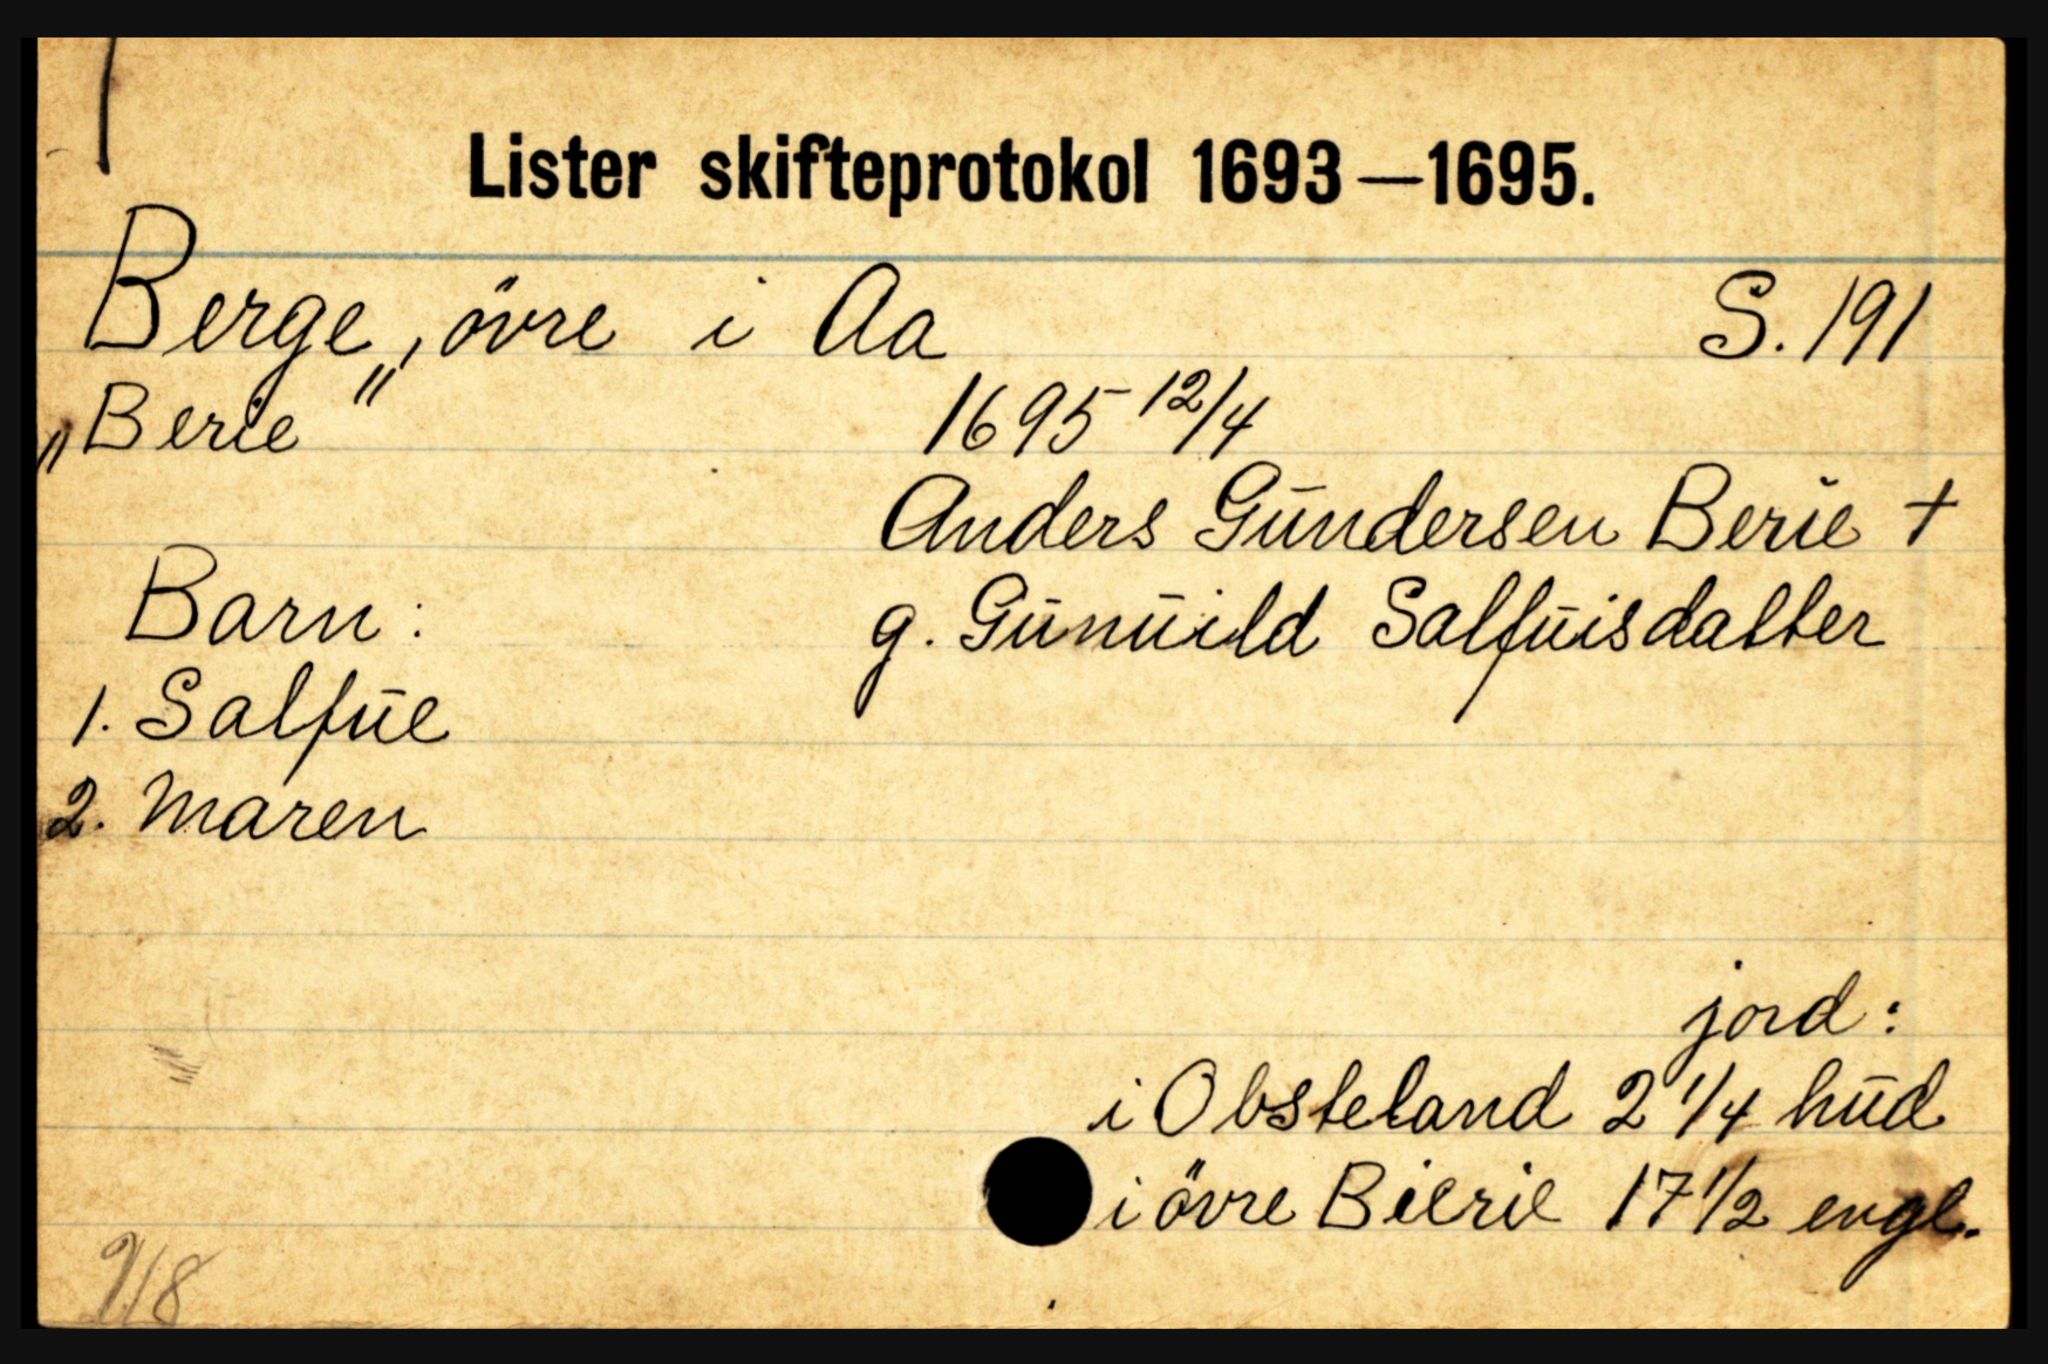 Lister skifteprotokol 1693—1695.
Berge, övre i Aa S. 191
„Berie" 1695 12/4
Anders Gūndersen Berie +
Barn: g. Gūnūild Salfūisdatter
1. Salfūe
2. Maren
jord:
i Obsteland 2 1/4 hūd
i övre Bierie 17 1/2 engl.